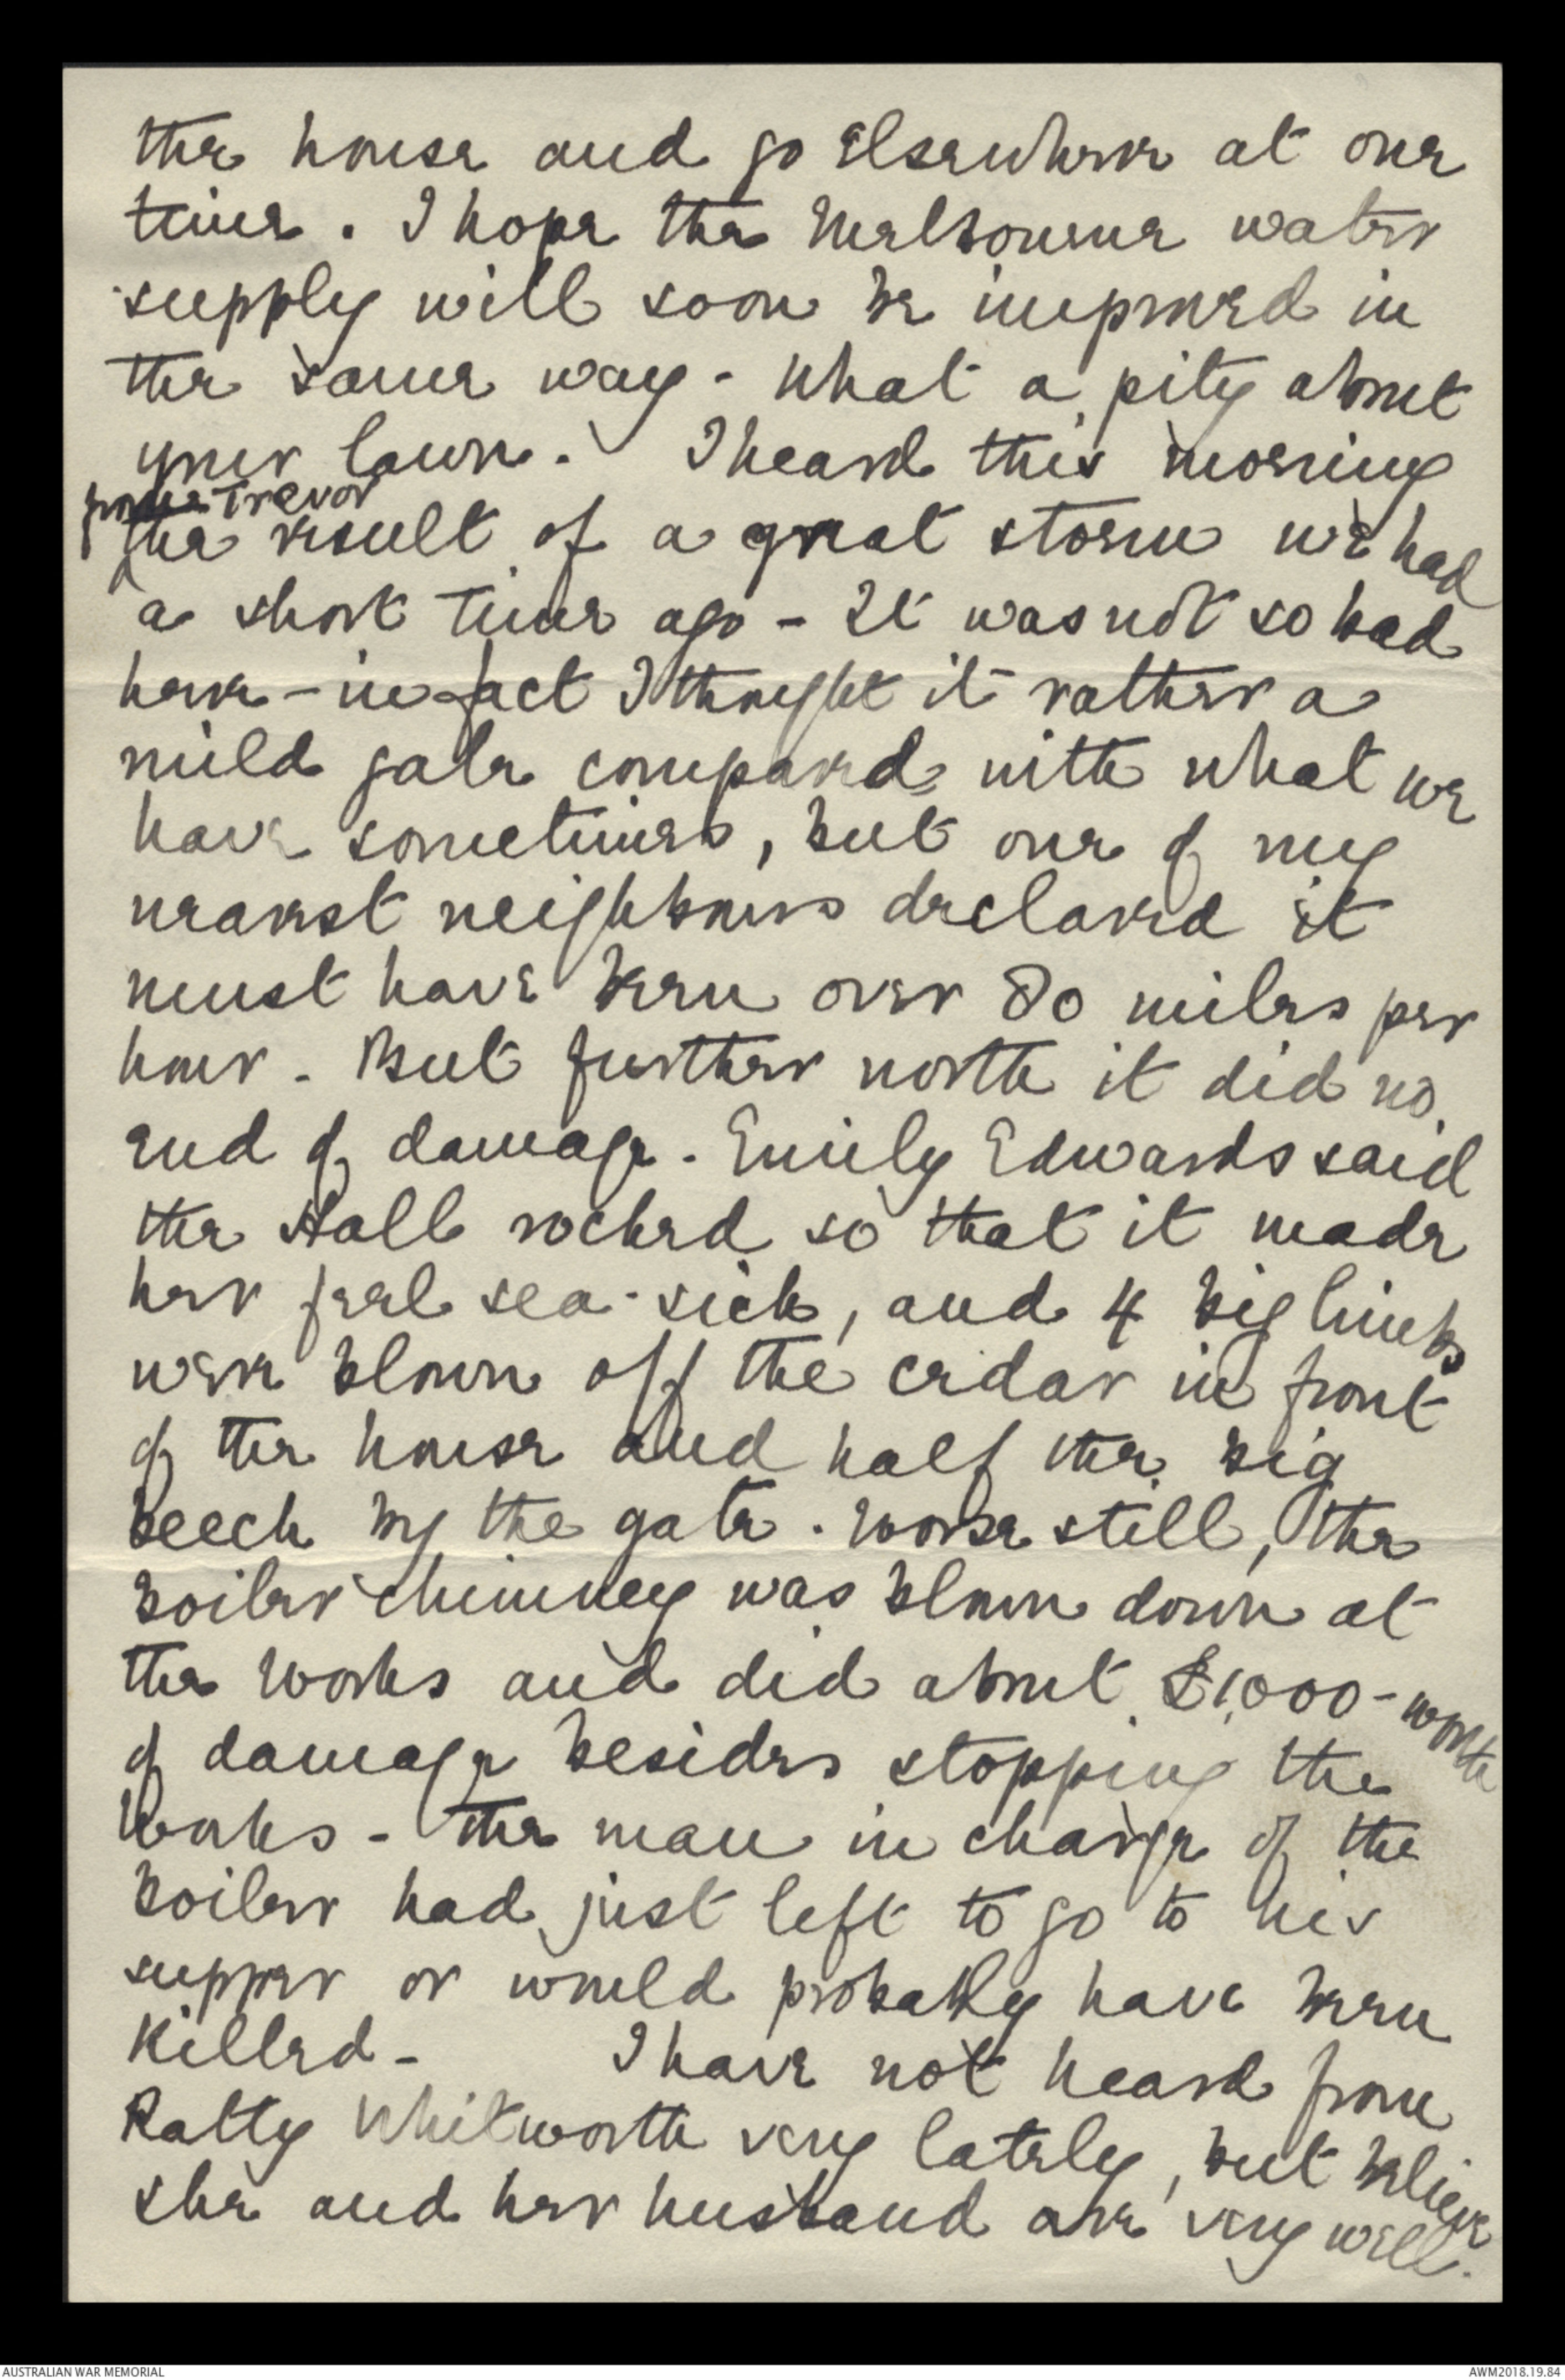 the house and go elsewhere at one
time. I hope the Melbourne water
supply will soon be improved in
the same way - what a pity about
your lawn. I heard this morning
from Trevor
the result of a great storm we had
a short time ago - It was not so bad
here - in fact I thought it rather a
mild gale compared with what we
have sometimes, but one of my
nearest neighbours declared it
must have been over 80 miles per
hour. But further north it did no
end of damage. Emily Edwards said
the Hall rocked so that it made
her feel sea-sick, and 4 big limbs
were blown off the cedar in front
of the house and half the big
beech by the gate. Worse still, the
boiler chimney was blown down at
the works and did about £1,000 - worth
of damage besides stopping the
works - the man in charge of the
boiler had just left to go to his
supper or would probably have been
killed - I have not heard from
Whitworth very lately, but believe
she and her husband are very well.
AUSTRALIAN WAR MEMORIAL
AWM2018.19.84